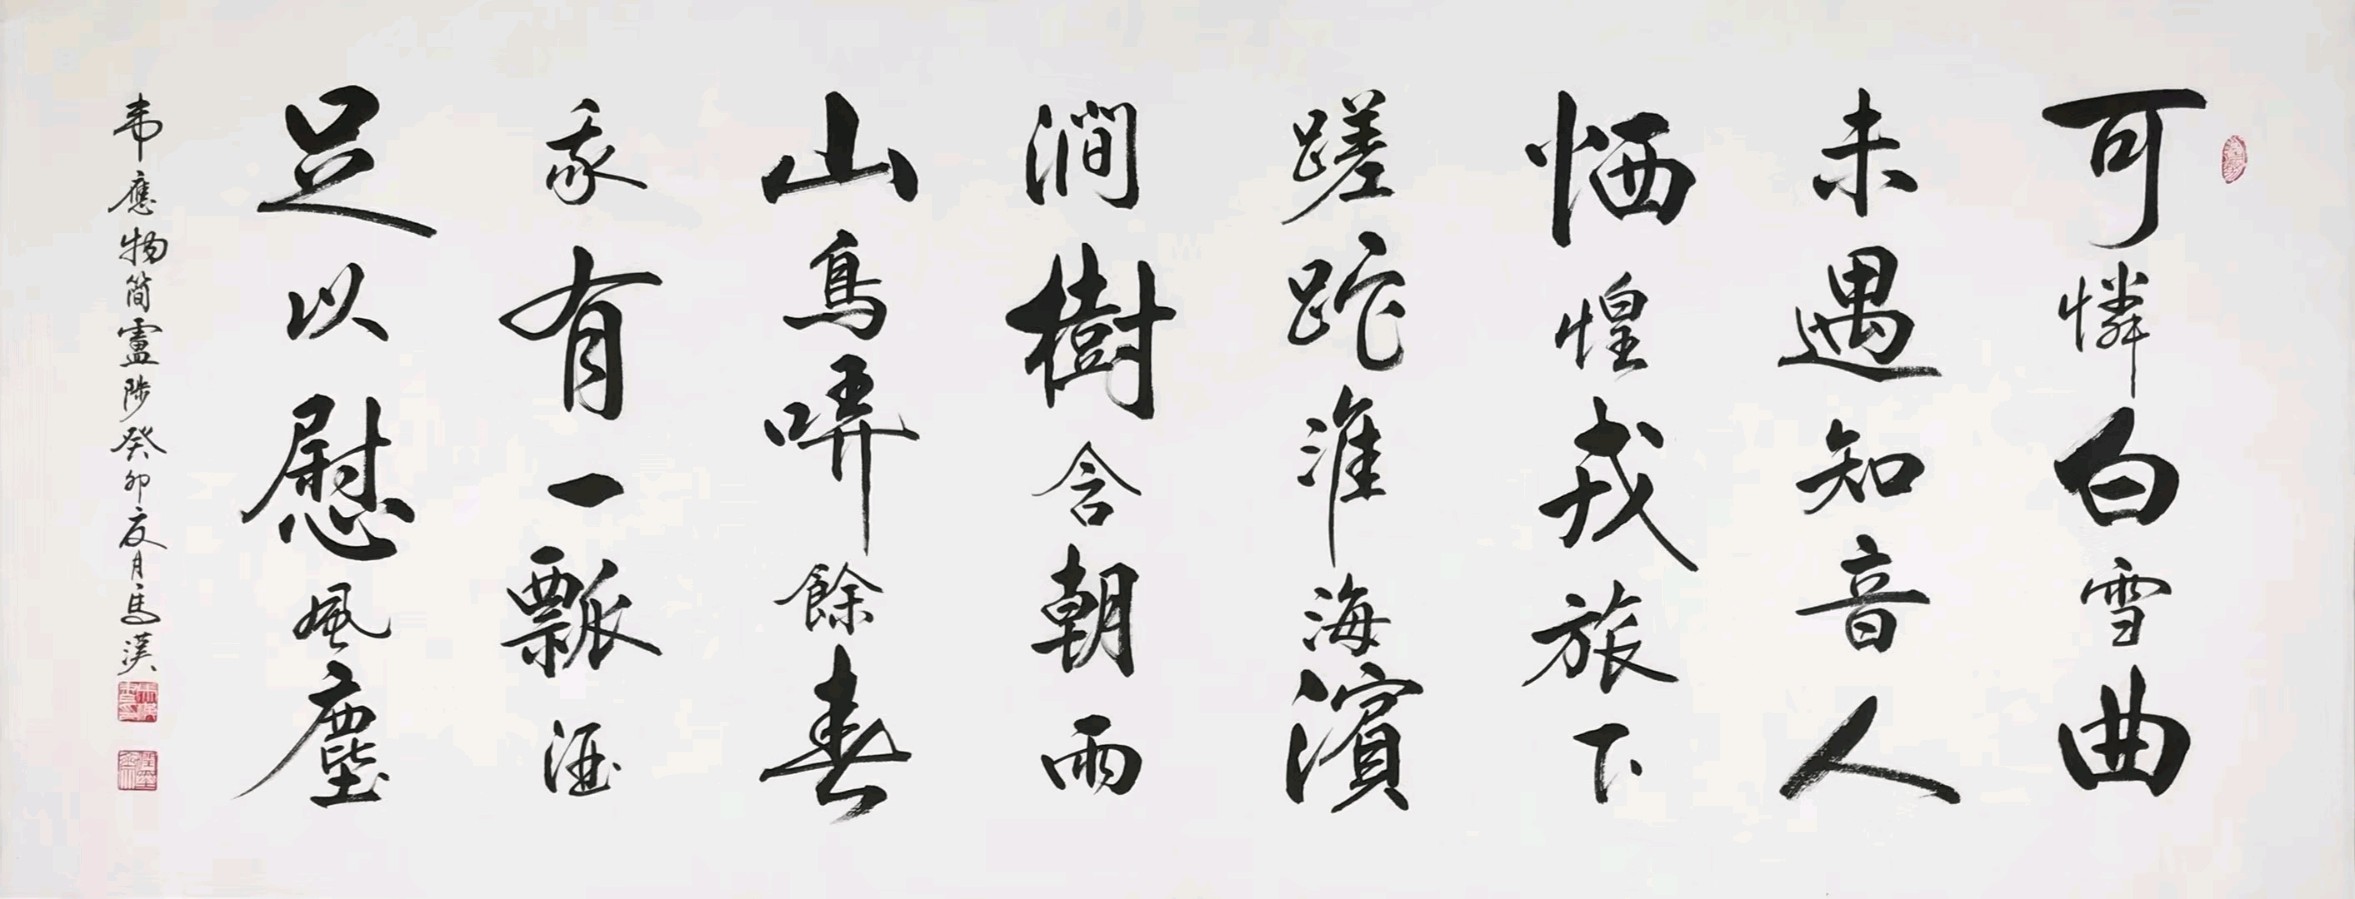 可憐白雪曲
未遇知音人
恓惶戎旅下
蹉跎淮海濱
澗樹含朝雨
山鳥哢餘春
我有一瓢酒
足以慰風塵
韦應物简盧陟癸卯夏月馬漢